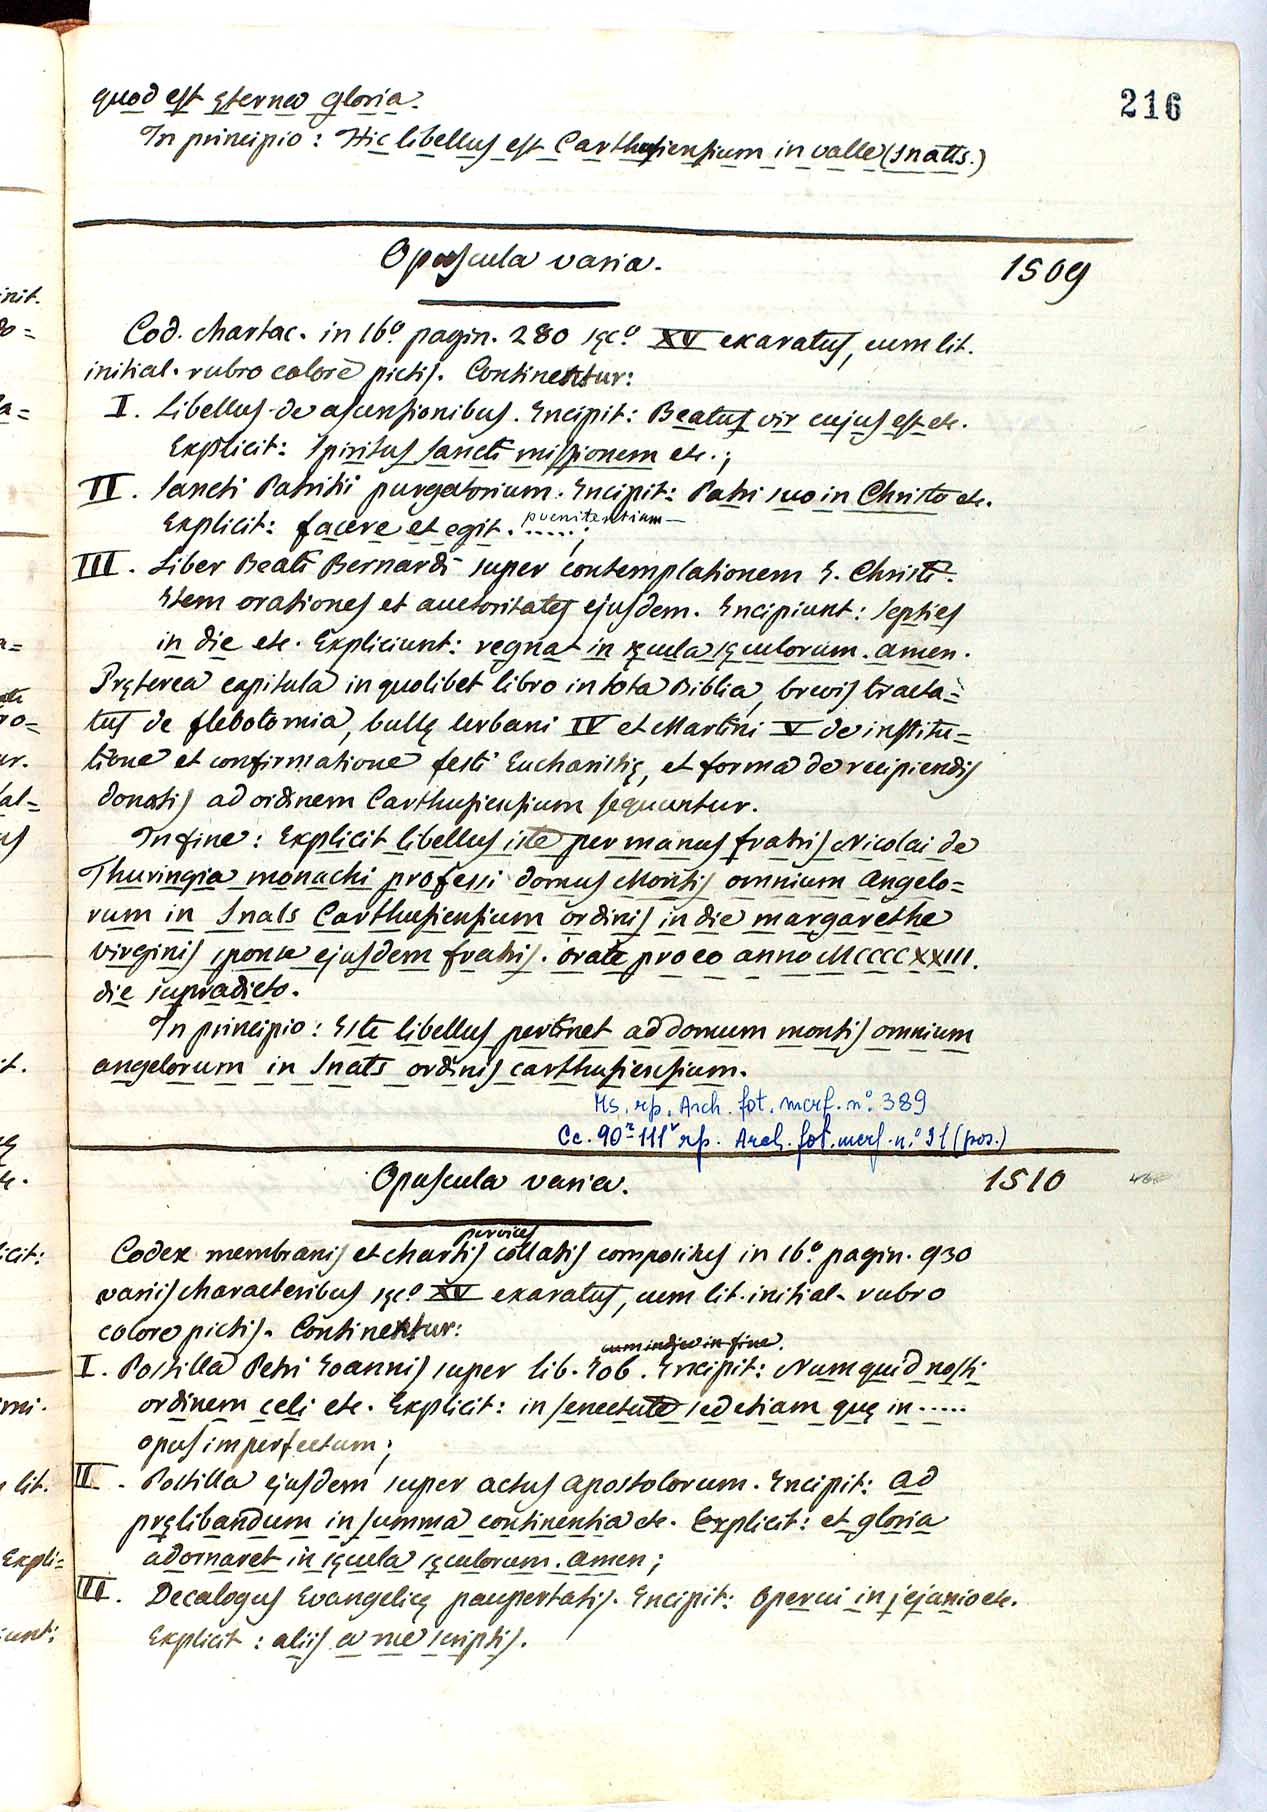 216
quod est ęterna gloria.
In principio: Hic libellus est Carthusiensium in valle (Snals.)
Opuscula varia.
1509
Cod. chartac. in 16º pagin. 280 sęcº XV exaratus, cum lit.
initial. rubro colore pictis. Continentur:
I. Libellus de ascensionibus. Incipit: Beatus vir cujus est etc.
Explicit: Spiritus sancti missionem etc.;
II. Sancti Patritii purgatorium. Incipit: Patri suo in Christo etc.
Explicit: facere et egit. poenitentiam .....;
III. Liber Beati Bernardi super contemplationem I. Christi.
Item orationes et auctoritates ejusdem. Incipiunt: septies
in die etc. Expliciunt: regnat in sęcula sęculorum. amen.
Pręterea capitula in quolibet libro in tota Biblia, brevis tracta=
tus de flebotomia, bullę Urbani IV et Martini V de institu=
tione et confirmatione festi Eucharistię, et forma de recipiendis
donatis ad ordinem Carthusiensium sequuntur.
In fine: Explicit libellus iste per manus fratris Nicolai de
Thuringia monachi professi domus Montis omnium angelo=
rum in Snals Carthusiensium ordinis in die margarethe
virginis sponse ejusdem fratris. orate pro eo anno MCCCCXXIII.
die supradicto.
In principio: Iste libellus pertinet ad domum montis omnium
angelorum in Snals ordinis carthusiensium.
Ms. rp. Arch. fot. mcrf. n.º 389
Cc. 90r-111v rp. Arch. fot. mcrf. n.º 31 (pos.)
Opuscula varia.
1510
Codex membranis et chartis pervices collatis compositus in 16º pagin. 930
variis characteribus sęcº XV exaratus, cum lit. initial. rubro
colore pictis. Continentur:
cum indice in fine.
I. Postilla Petri Ioannis super lib. Iob. Incipit: Numquid nosti
ordinem celi etc. Explicit: in senectute sed etiam quę in .....
opus imperfectum;
II. Postilla ejusdem super actus apostolorum. Incipit: ad
pręlibandum in summa continentia etc. Explicit: et gloria
adornaret in sęcula sęculorum. amen;
III. Decalogus Evangelicę paupertatis. Incipit: Operui in jejunio etc.
Explicit: aliis a me scriptis.